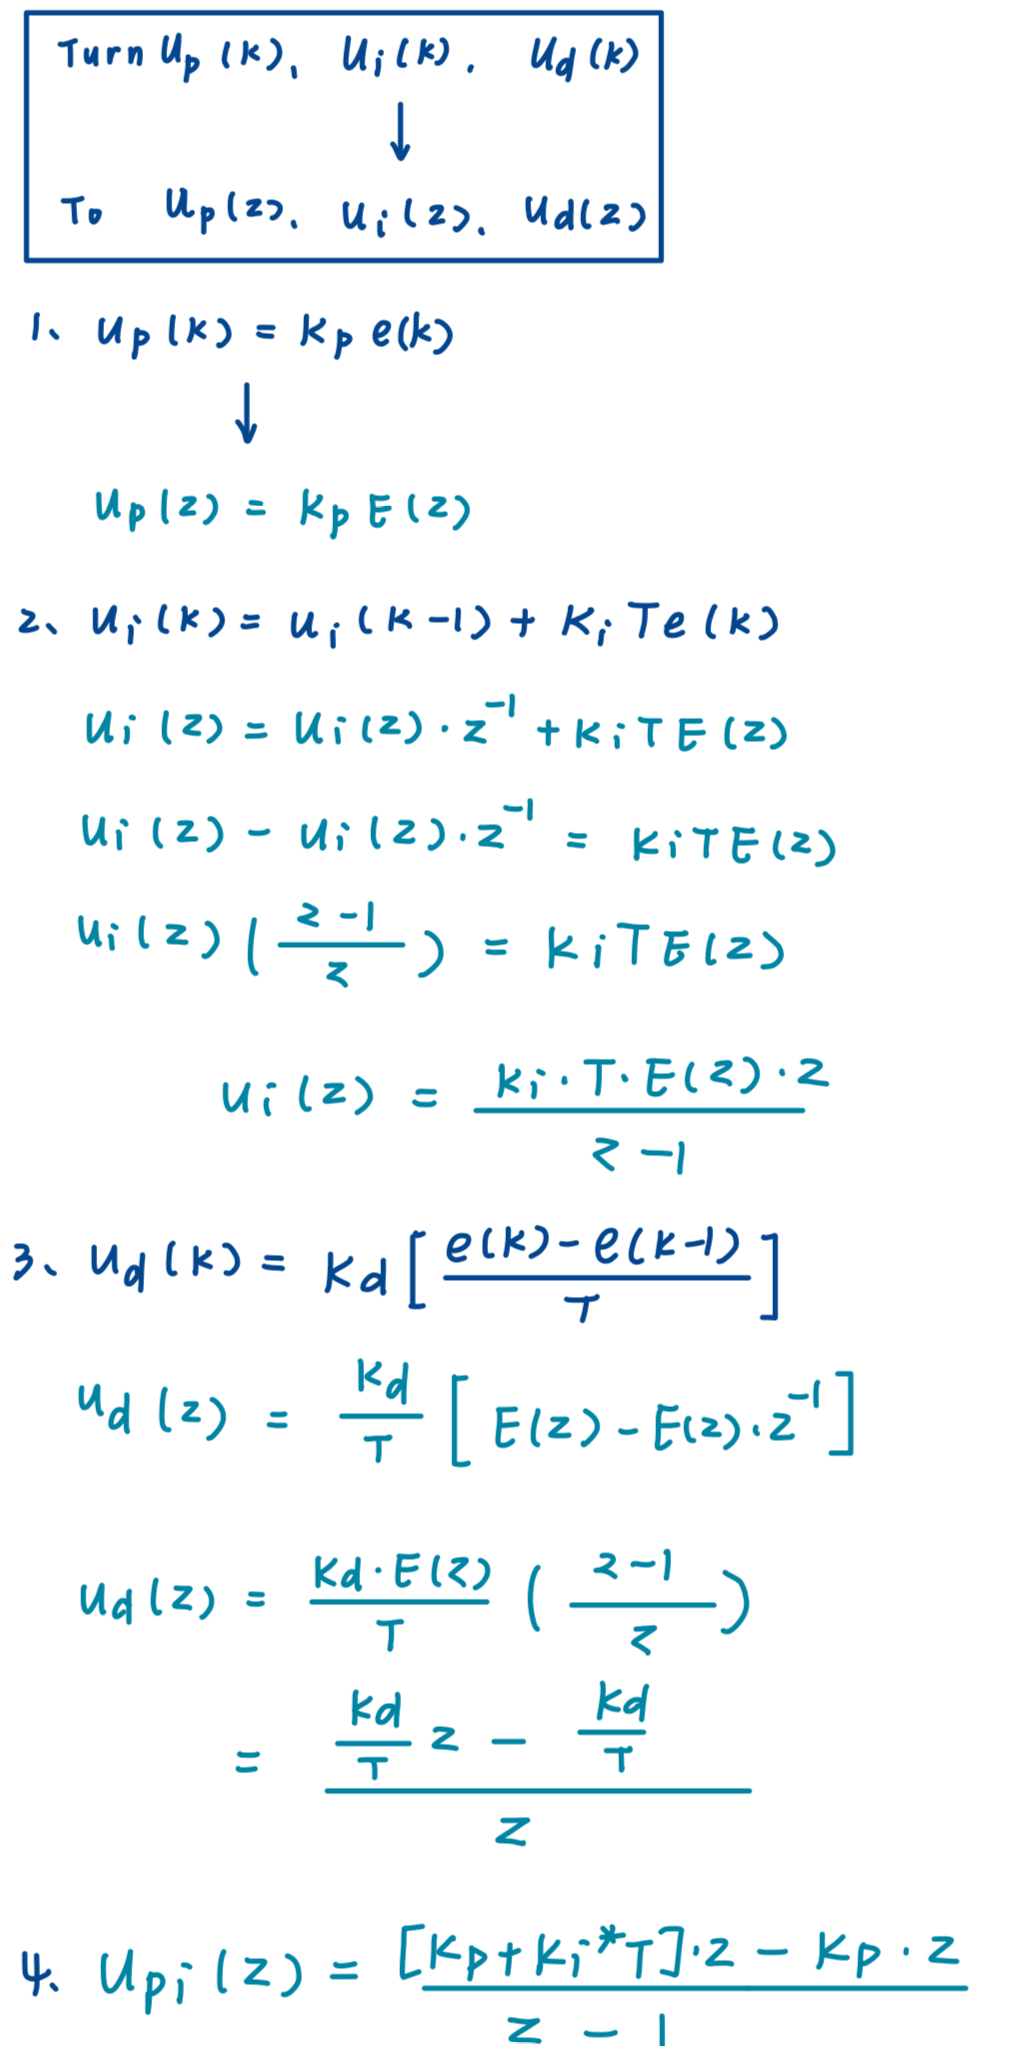 Turn Up(k)、 Ui(k). Ud(k)
↓
To Up(z). Ui(z). Ud(z)
1、 Up(k) = Kp e(k)
↓
Up(z) = Kp E(z)
2、 Ui(k) = Ui(k-1) + Ki T e(k)
Ui(z) = Ui(z)·z⁻¹ + Ki T E(z)
Ui(z) - Ui(z)·z⁻¹ = Ki T E(z)
Ui(z) ( (z-1) / z ) = Ki T E(z)
Ui(z) = (Ki·T·E(z)·z) / (z-1)
3、 Ud(k) = Kd [ (e(k) - e(k-1)) / T ]
Ud(z) = Kd / T [ E(z) - E(z)·z⁻¹ ]
Ud(z) = (Kd·E(z)) / T ( (z-1) / z )
= (Kd/T z - Kd/T) / z
4、 Upi(z) = ([Kp + Ki*T]·z - Kp·z) / (z - 1)